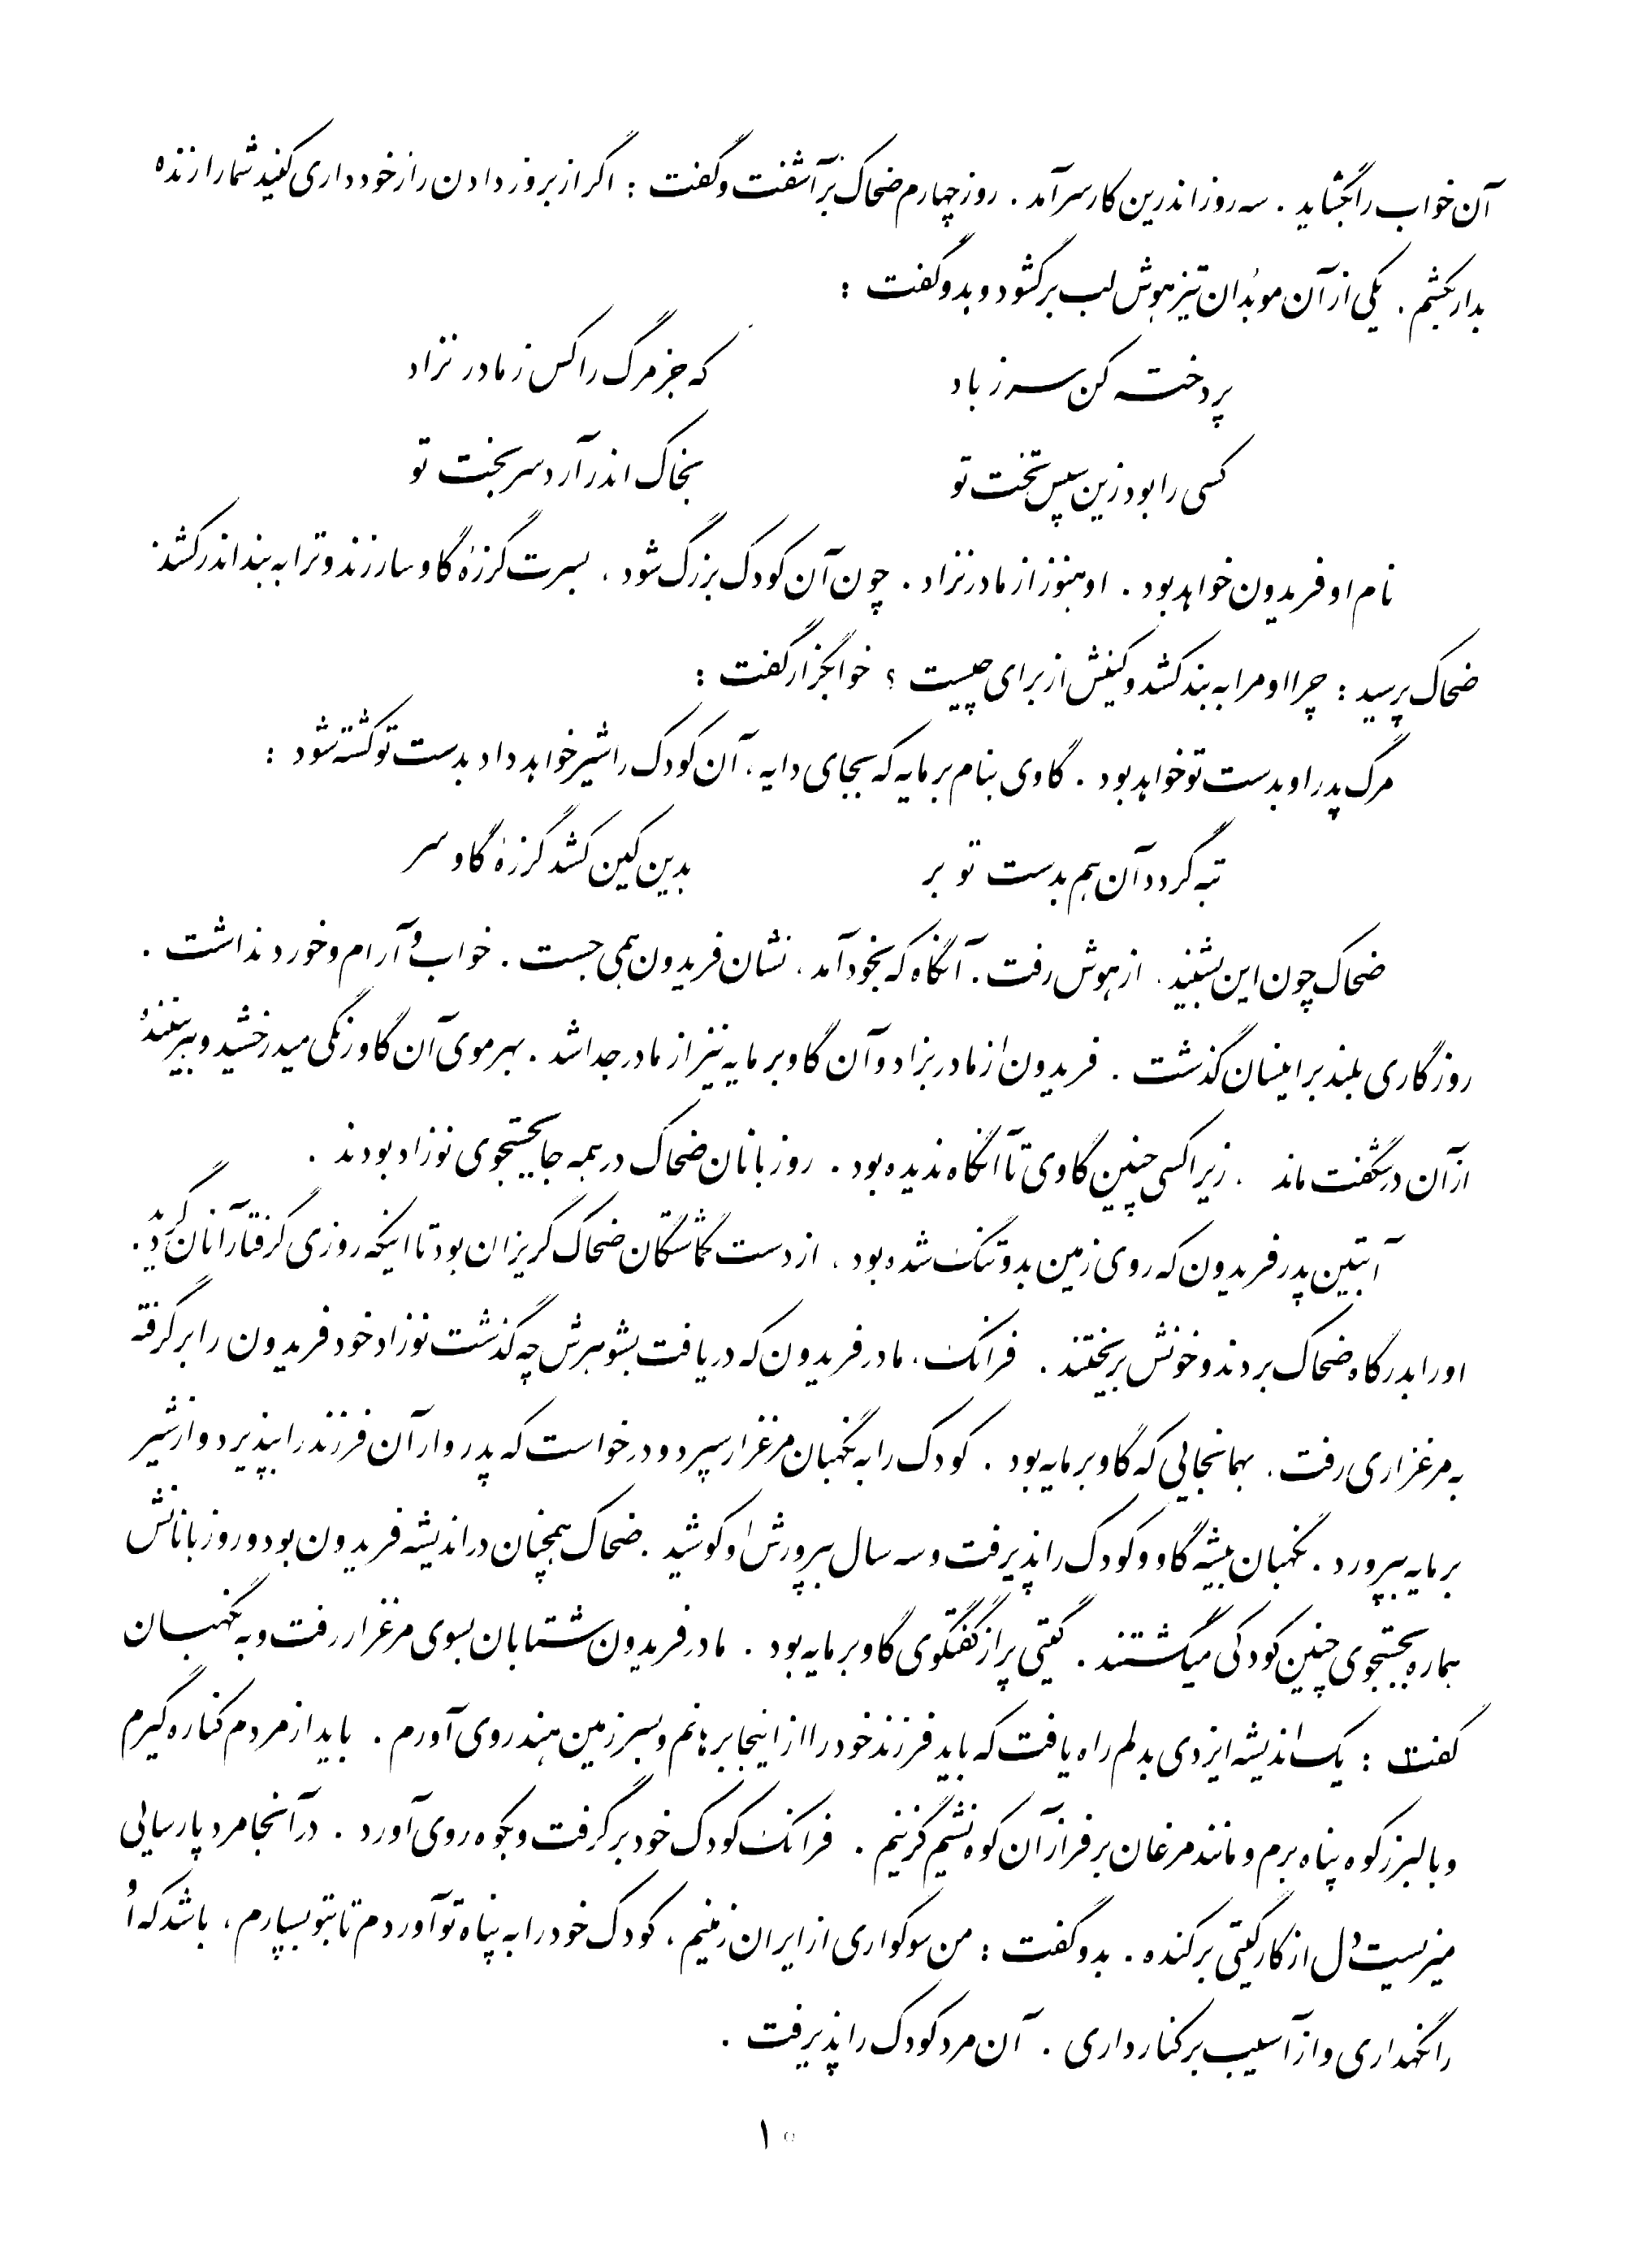 آن خواب را بگشاید . سه روز اندرین کار سر آمد . روز چهارم ضحاک برآشفت و گفت : اگر از بروز دادن راز خودداری کنید شما را زنده
بدار بکشم . یکی از آن موبدان تیزهوش لب برگشود و بدو گفت :
پردخت کن سر ز باد
که جز مرگ را کس ز مادر نزاد
کسی را بود زین سپس تخت تو
بخاک اندر آرد سر بخت تو
نام او فریدون خواهد بود . او هنوز از مادر نزاد . چون آن کودک بزرگ شود ، بسرت گرزهٔ گاو سار زند و ترا به بند اندر کشد :
ضحاک پرسید : چرا او مرا به بند کشد و کینش از برای چیست ؟ خوابگزار گفت :
مرگ پدر او بدست تو خواهد بود . گاوی بنام برمایه که بجای دایه ، آن کودک را شیر خواهد داد بدست تو کشته شود :
تبه گردد آن هم بدست تو بر
بدین کین کشد گرزهٔ گاو سر
ضحاک چون این بشنید ، از هوش رفت . آنگاه که بخود آمد ، نشان فریدون همی جست . خواب و آرام و خورد نداشت .
روزگاری بلند بر اینسان گذشت . فریدون از مادر بزاد و آن گاو برمایه نیز از مادر جدا شد . بهر موی آن گاو رنگی میدرخشید و بیننده
از آن در شگفت ماند . زیرا کسی چنین گاوی تا آنگاه ندیده بود . روزبانان ضحاک در همه جا بجستجوی نوزاد بودند .
آبتین پدر فریدون که روی زمین بدو تنگ شده بود ، از دست گماشتگان ضحاک گریزان بود تا اینکه روزی گرفتار آنان گردید .
او را بدرگاه ضحاک بردند و خونش بریختند . فرانک ، مادر فریدون که دریافت بشوهرش چه گذشت نوزاد خود فریدون را برگرفته
به مرغزاری رفت . بهمانجایی که گاو برمایه بود . کودک را به نگهبان مرغزار سپرد و درخواست که پدروار آن فرزند را بپذیرد و از شیر
برمایه بپرورد . نگهبان بیشه گاو و کودک را پذیرفت و سه سال بپرورش او کوشید . ضحاک همچنان در اندیشه فریدون بود و روزبانانش
هماره بجستجوی چنین کودکی میگشتند . گیتی پر از گفتگوی گاو برمایه بود . مادر فریدون شتابان بسوی مرغزار رفت و به نگهبان
گفت : یک اندیشه ایزدی بدلم راه یافت که باید فرزند خود را از اینجا برهانم و بسرزمین هند روی آورم . باید از مردم کناره گیرم
و بالبرز کوه پناه برم و مانند مرغان بر فراز آن کوه نشیم گزینم . فرانک کودک خود برگرفت و بکوه روی آورد . در آنجا مرد پارسایی
میزیست دل از کار گیتی برکنده . بدو گفت : من سوکواری از ایران زمینم ، کودک خود را به پناه تو آوردم تا بتو بسپارم ، باشد که او
را نگهداری و از آسیب برکنار داری . آن مرد کودک را پذیرفت .
۱۰